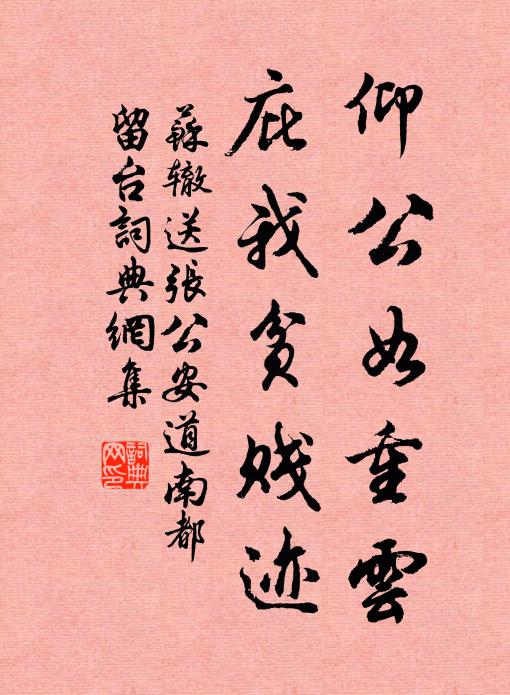 仰公如重雲
庇我貧賤迹
蘇轍送張公安道南都
留台詞典網集
詞典
网印